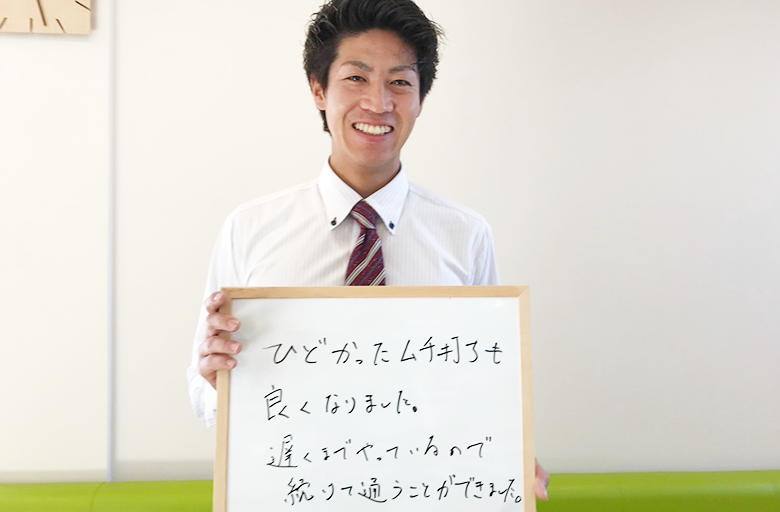 ひどかったムチ打ちも
良くなりました。
遅くまでやっているので
続けて通うことができました。